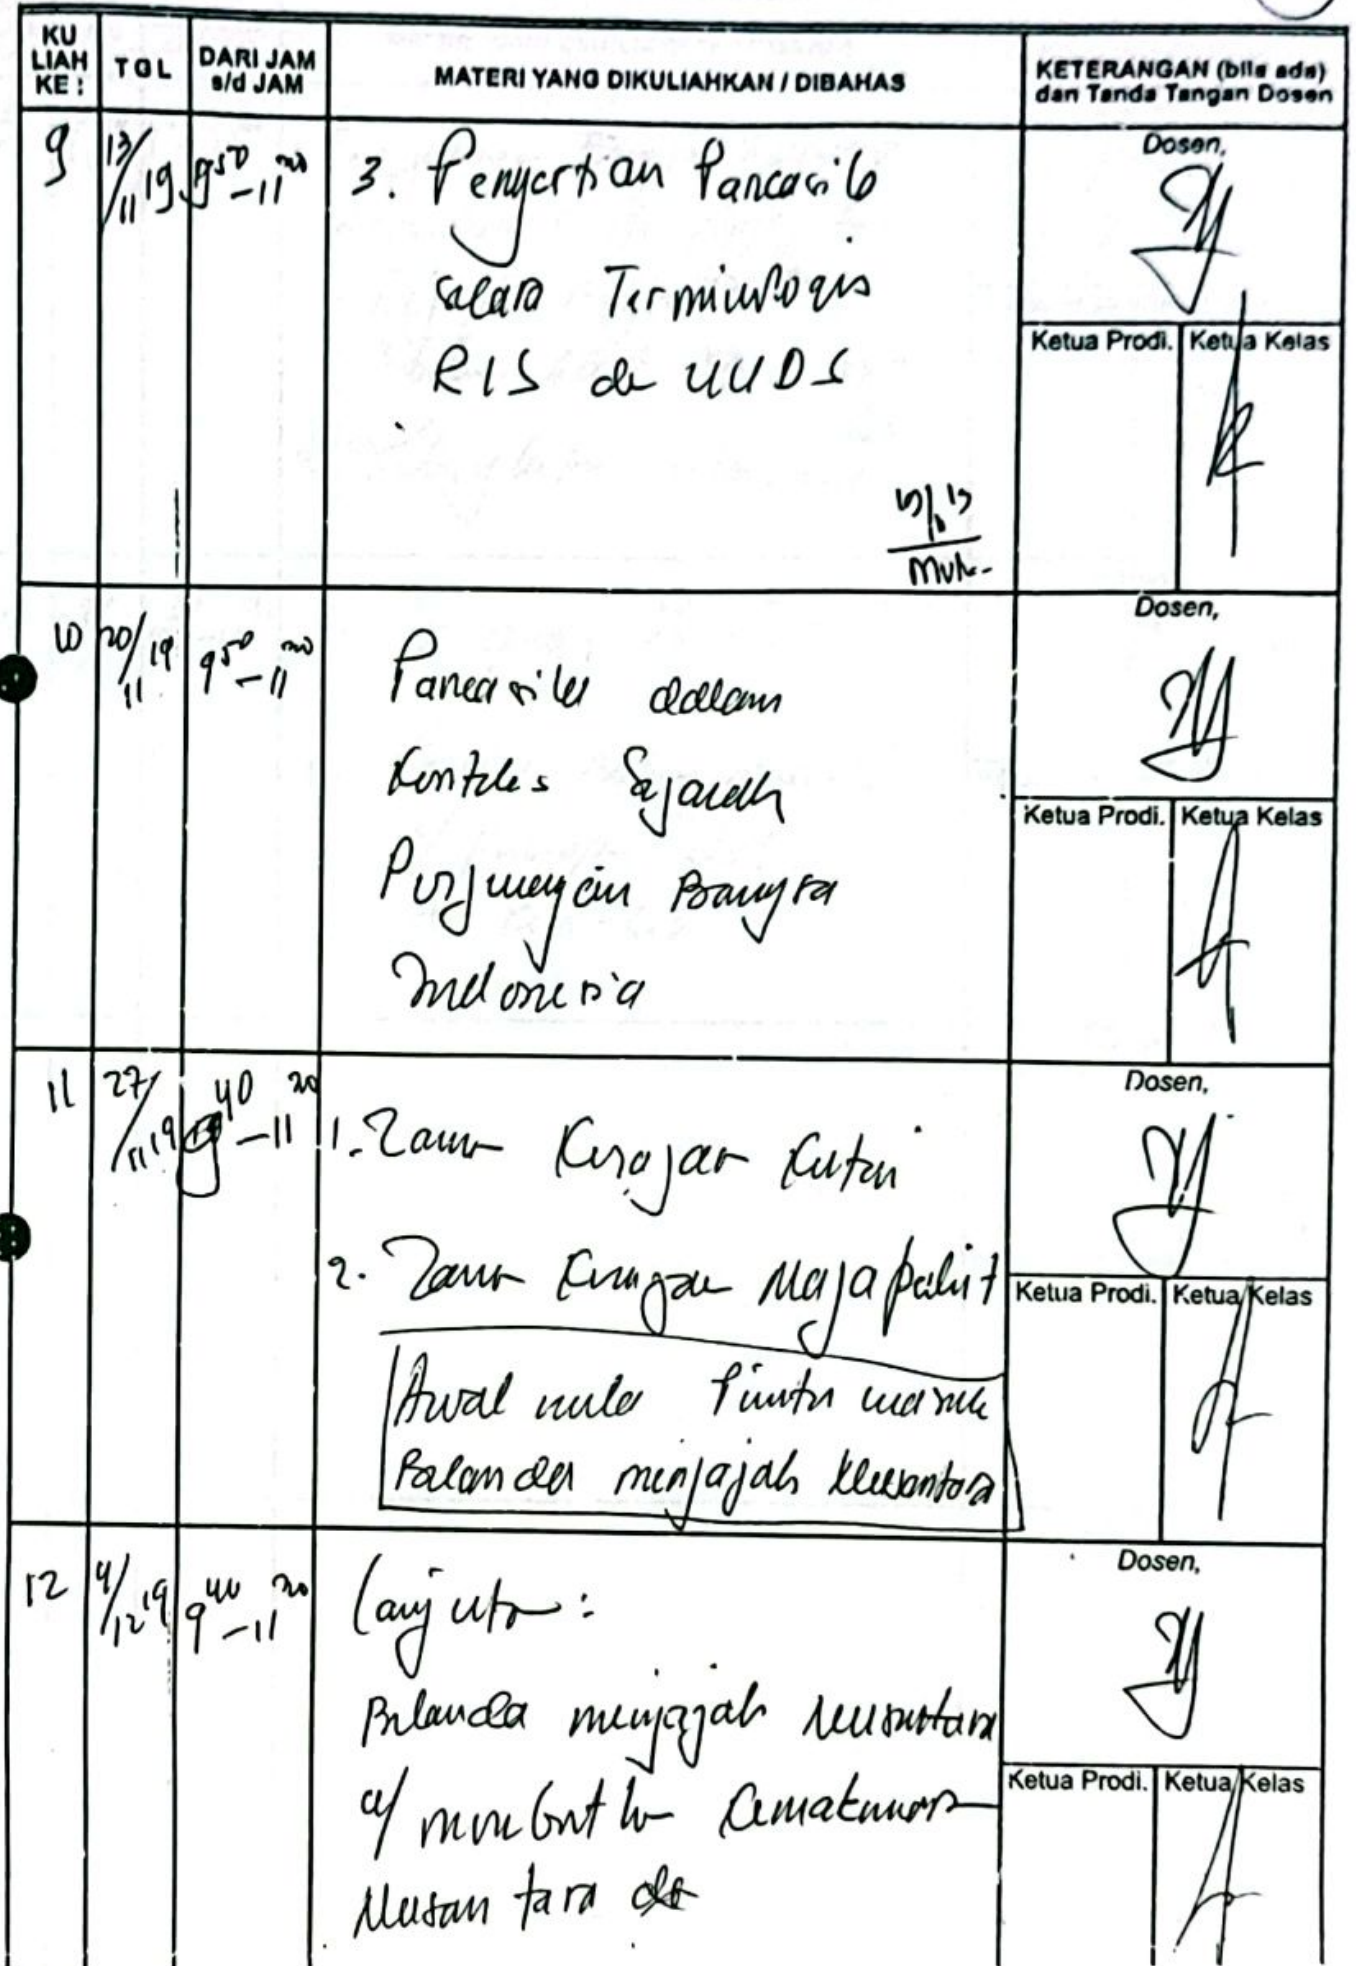 KU LIAH KE :
TGL
DARI JAM s/d JAM
MATERI YANG DIKULIAHKAN / DIBAHAS
KETERANGAN (bila ada) dan Tanda Tangan Dosen
9
13/11 19
9.50 - 11.20
3. Pengertian Pancasila
secara Terminologis
RIS dan UUDS
Dosen,
Ketua Prodi.
Ketua Kelas
10
20/11 19
9.50 - 11.20
Pancasila dalam
Konteks Sejarah
Perjuangan Bangsa
Indonesia
Dosen,
Ketua Prodi.
Ketua Kelas
11
27/11 19
9.40 - 11.20
1. Zaman Kerajaan Kutai
2. Zaman Kerajaan Majapahit
Awal mula Pintu masuk
Belanda menjajah Nusantara
Dosen,
Ketua Prodi.
Ketua Kelas
12
4/12 19
9.40 - 11.20
Lanjutan :
Belanda menjajah Nusantara
Nusantara
Dosen,
Ketua Prodi.
Ketua Kelas